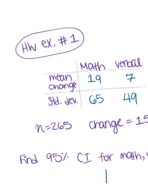 HW ex. # 1
Math verbal
mean change 19 7
Std. dev. 65 49
n=265 change = 15
find 95% CI for math,